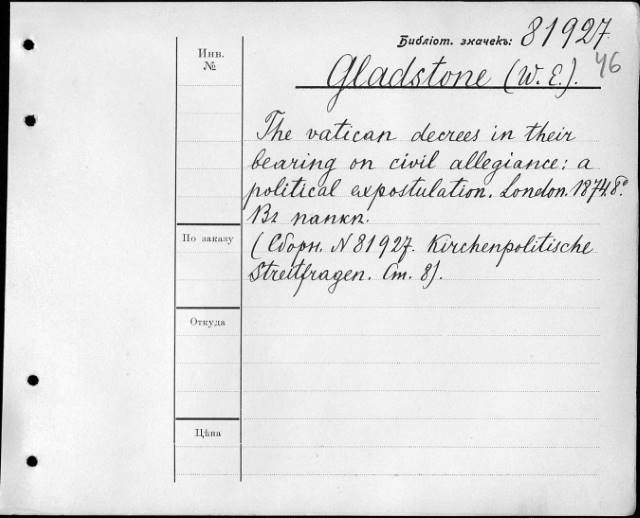 Библіот. значекъ: 81927
46
Инв.
№
Gladstone (W. E.).
The vatican decrees in their
bearing on civil allegiance: a
political expostulation. London. 1874. 8º
Въ папкѣ.
По заказу
(Сборн. N 81927. Kirchenpolitische
Streitfragen. Ст. 8).
Откуда
Цѣна